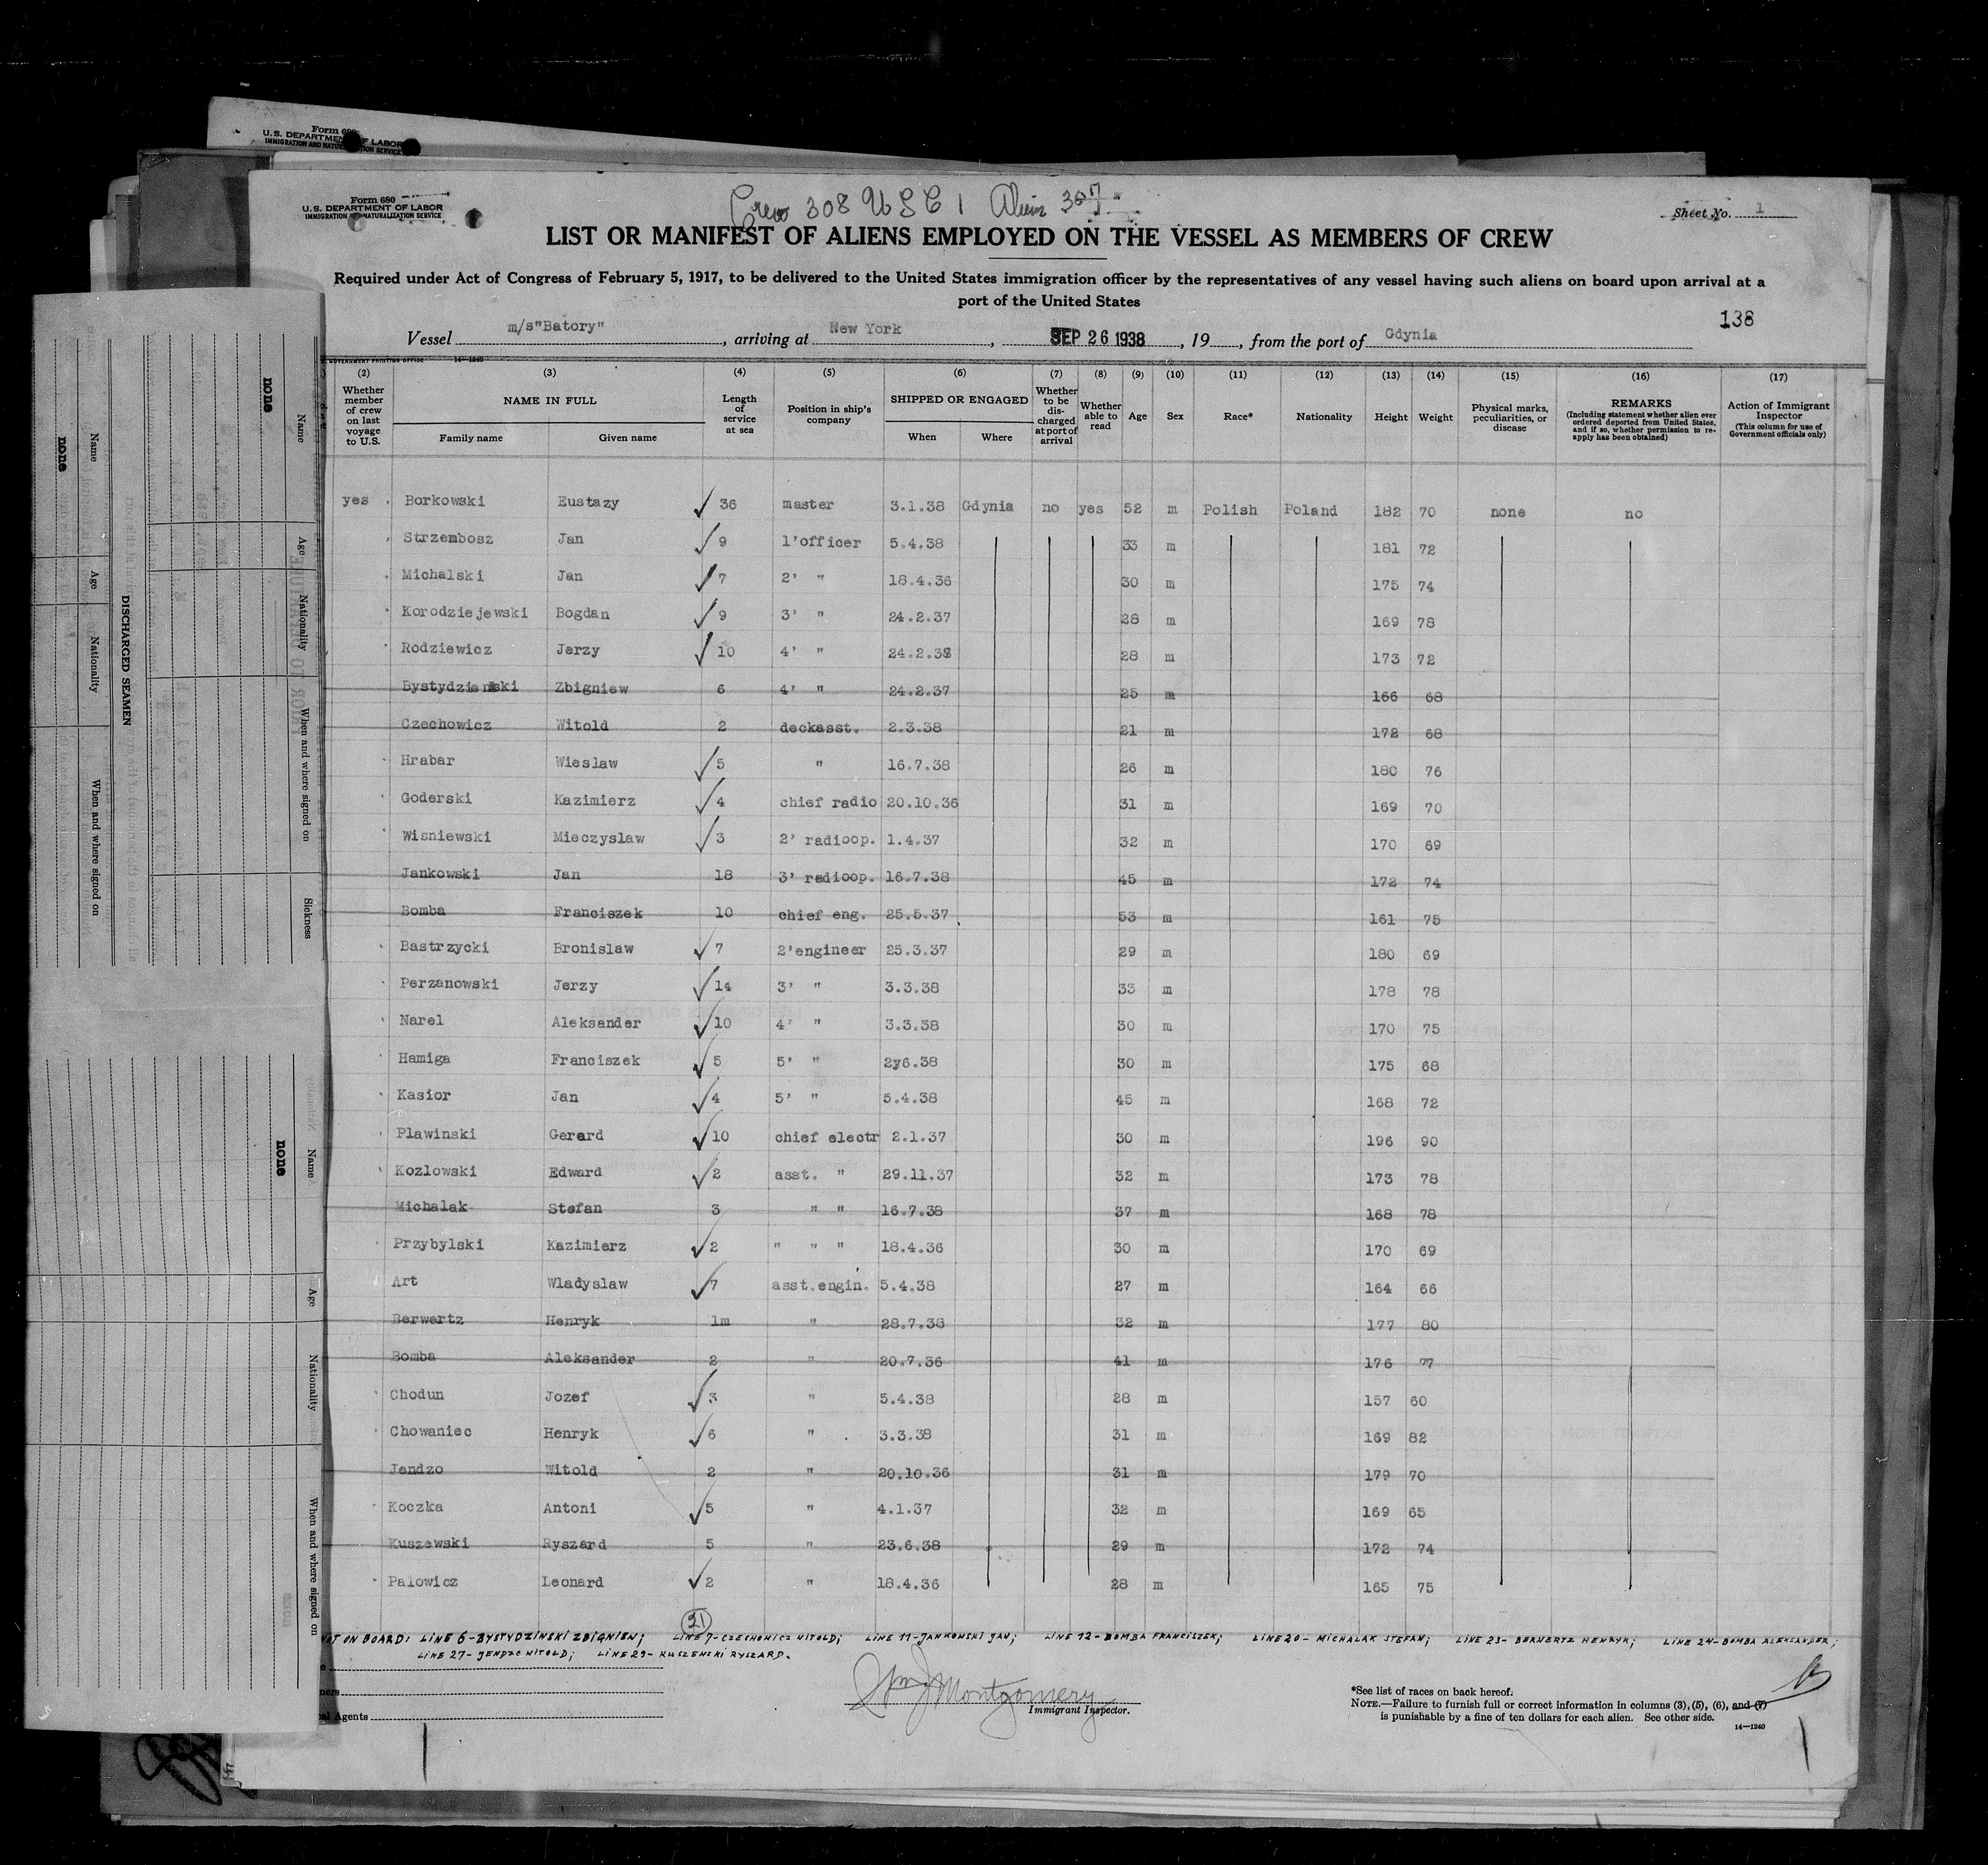 Form 680
U.S. DEPARTMENT OF LABOR
IMMIGRATION AND NATURALIZATION SERVICE
Form 680
U.S. DEPARTMENT OF LABOR
IMMIGRATION AND NATURALIZATION SERVICE
Crew 308 USC 1 Alien 307
Sheet No. 1
LIST OR MANIFEST OF ALIENS EMPLOYED ON THE VESSEL AS MEMBERS OF CREW
Required under Act of Congress of February 5, 1917, to be delivered to the United States immigration officer by the representatives of any vessel having such aliens on board upon arrival at a
port of the United States
138
Vessel m/s"Batory", arriving at New York, SEP 26 1938, 19, from the port of Gdynia
GOVERNMENT PRINTING OFFICE 14—1240
(2) (3) (4) (5) (6) (7) (8) (9) (10) (11) (12) (13) (14) (15) (16) (17)
Whether member of crew on last voyage to U.S.
NAME IN FULL
Family name Given name
Length of service at sea
Position in ship's company
SHIPPED OR ENGAGED
When Where
Whether to be discharged at port of arrival
Whether able to read
Age Sex Race* Nationality Height Weight
Physical marks, peculiarities, or disease
REMARKS
(Including statement whether alien ever ordered deported from United States, and if so, whether permission to reapply has been obtained)
Action of Immigrant Inspector
(This column for use of Government officials only)
yes Borkowski Eustazy 36 master 3.1.38 Gdynia no yes 52 m Polish Poland 182 70 none no
Strzembosz Jan 9 1'officer 5.4.38 33 m 181 72
Michalski Jan 7 2' " 18.4.36 30 m 175 74
Korodziejewski Bogdan 9 3' " 24.2.37 28 m 169 78
Rodziewicz Jerzy 10 4' " 24.2.38 28 m 173 72
Bystydzienski Zbigniew 6 4' " 24.2.37 25 m 166 68
Czechowicz Witold 2 deckasst. 2.3.38 21 m 172 68
Hrabar Wieslaw 5 " 16.7.38 26 m 180 76
Goderski Kazimierz 4 chief radio 20.10.36 31 m 169 70
Wisniewski Mieczyslaw 3 2' radioop. 1.4.37 32 m 170 69
Jankowski Jan 18 3' radioop. 16.7.38 45 m 172 74
Bomba Franciszek 10 chief eng. 25.5.37 53 m 161 75
Bastrzycki Bronislaw 7 2'engineer 25.3.37 29 m 180 69
Perzanowski Jerzy 14 3' " 3.3.38 33 m 178 78
Narel Aleksander 10 4' " 3.3.38 30 m 170 75
Hamiga Franciszek 5 5' " 2y6.38 30 m 175 68
Kasior Jan 4 5' " 5.4.38 45 m 168 72
Plawinski Gerard 10 chief electr 2.1.37 30 m 196 90
Kozlowski Edward 2 asst. " 29.11.37 32 m 173 78
Michalak Stefan 3 " " 16.7.38 37 m 168 78
Przybylski Kazimierz 2 " " " 18.4.36 30 m 170 69
Art Wladyslaw 7 asst.engin. 5.4.38 27 m 164 66
Berwertz Henryk 1m " 28.7.38 32 m 177 80
Bomba Aleksander 2 " 20.7.36 41 m 176 77
Chodun Jozef 3 " 5.4.38 28 m 157 60
Chowaniec Henryk 6 " 3.3.38 31 m 169 82
Jendzo Witold 2 " 20.10.36 31 m 179 70
Koczka Antoni 5 " 4.1.37 32 m 169 65
Kuszewski Ryszard 5 " 23.6.38 29 m 172 74
Palowicz Leonard 2 " 18.4.36 28 m 165 75
21
NOT ON BOARD: LINE 6-BYSTYDZINSKI ZBIGNIEW; LINE 7-CZECHOWICZ WITOLD; LINE 11-JANKOWSKI JAN; LINE 12-BOMBA FRANCISZEK; LINE 20-MICHALAK STEFAN; LINE 23-BERWERTZ HENRYK; LINE 24-BOMBA ALEKSANDER;
LINE 27-JENDZO WITOLD; LINE 29-KUSZEWSKI RYSZARD.
Agents
Wm J Montgomery
Immigrant Inspector.
*See list of races on back hereof.
NOTE.—Failure to furnish full or correct information in columns (3), (5), (6), and (7)
is punishable by a fine of ten dollars for each alien. See other side.
14—1240
DISCHARGED SEAMEN
Name Age Nationality When and where signed on
none
Name Age Nationality When and where signed on Sickness
none
Name Age Nationality When and where signed on
none